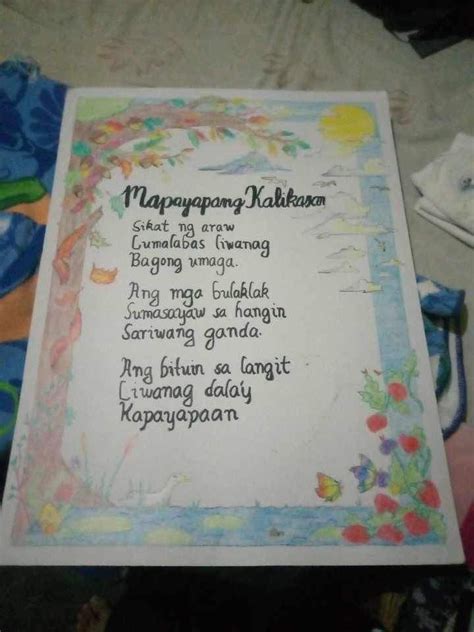 Mapayapang Kalikasan
Sikat ng araw
Lumalabas liwanag
Bagong umaga.
Ang mga bulaklak
Sumasayaw sa hangin
Sariwang ganda.
Ang bituin sa langit
Liwanag dala'y
Kapayapaan